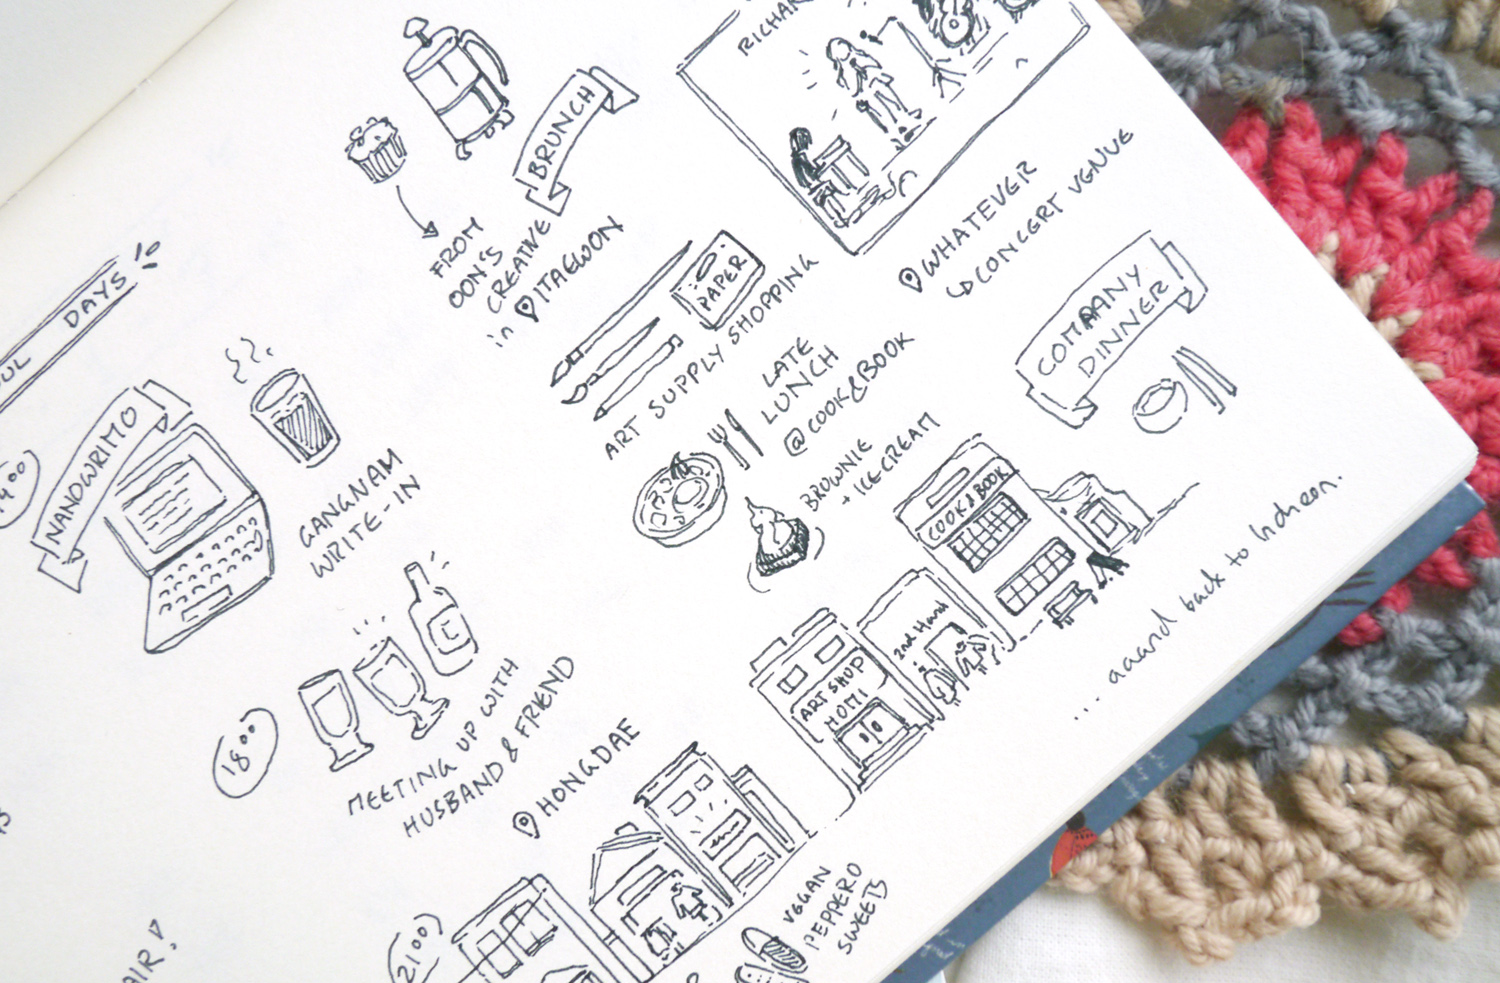 DAYS
NANOWRIMO
GANGNAM
WRITE-IN
1800
MEETING UP WITH
HUSBAND & FRIEND
HONGDAE
2100
AIR!
BRUNCH
FROM
OON'S
CREATIVE
in ITAEWON
PAPER
ART SUPPLY SHOPPING
LATE
LUNCH
@COOK&BOOK
BROWNIE
+ ICE CREAM
COOK & BOOK
2nd Hand
ART SHOP
HOMI
VEGAN
PEPPERO
SWEETS
RICHAR
WHATEVER
CONCERT VENUE
COMPANY
DINNER
... aaand back to Incheon.